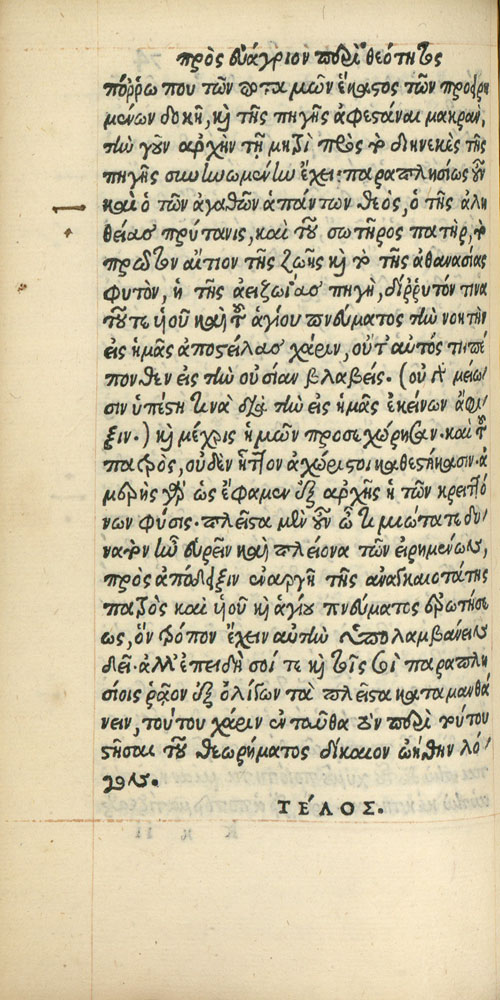 πρὸς εὐάγριον περὶ θεότητος
πόῤῥω που τῶν ποταμῶν ἕκαστος τῶν προειρη
μένων δοκῇ, κὶ τῆς πηγῆς ἀφεστάναι μακρὰν,
τὴν γοῦν ἀρχὴν τῇ μητρὶ πρὸς τὸ διηνεκὲς τῆς
πηγῆς συνηνωμένην ἔχει· παραπλησίως οὖν
καὶ ὁ τῶν ἀγαθῶν ἁπάντων θεὸς, ὁ τῆς ἀλη
θείας πρύτανις, καὶ τοῦ σωτῆρος πατὴρ, τὸ
πρῶτον αἴτιον τῆς ζωῆς κὶ τὸ τῆς ἀθανασίας
φυτὸν, ἡ τῆς ἀειζωΐας πηγὴ, δίῤῥυτόν τινα
τοῦ τε ἱοῦ καὶ τοῦ ἁγίου πνεύματος τὴν νοητὴν
εἰς ἡμᾶς ἀποστείλας χάριν, οὔτ' αὐτός τι πέ
πονθεν εἰς τὴν οὐσίαν βλαβείς. (οὐ γὰρ μείω-
σιν ὑπέστη τινὰ διὰ τὴν εἰς ἡμᾶς ἐκείνων ἄφι-
ξιν.) κὶ μέχρις ἡμῶν προσεχώρησαν. καὶ τοῦ
πατρὸς, οὐδὲν ἧττον ἀχώριστοι καθεστήκασιν. ἀ
μερὴς γὰρ ὡς ἔφαμεν ἐξ ἀρχῆς ἡ τῶν κρειττό
νων φύσις. πλεῖστα μὲν οὖν ὦ τιμιώτατε δυ-
νατὸν ἦν εὑρεῖν καὶ πλείονα τῶν εἰρημένων,
πρὸς ἀπόδειξιν ἐναργῆ τῆς ἀναγκαιοτάτης
πατρὸς καὶ ἱοῦ κὶ ἁγίου πνεύματος ἑνώσε-
ως, ὃν τρόπον ἔχειν αὐτὴν ὑπολαμβάνειν
δεῖ. ἀλλ' ἐπειδὴ σοί τε κὶ τοῖς σοὶ παραπλη
σίοις ῥᾷον ἐξ ὀλίγων τὰ πλεῖστα καταμανθά
νειν, τούτου χάριν ἐνταῦθα τὸν περὶ τούτου
στῆσαι τοῦ θεωρήματος δίκαιον ᾠήθην λό-
γον.
ΤΕΛΟΣ.